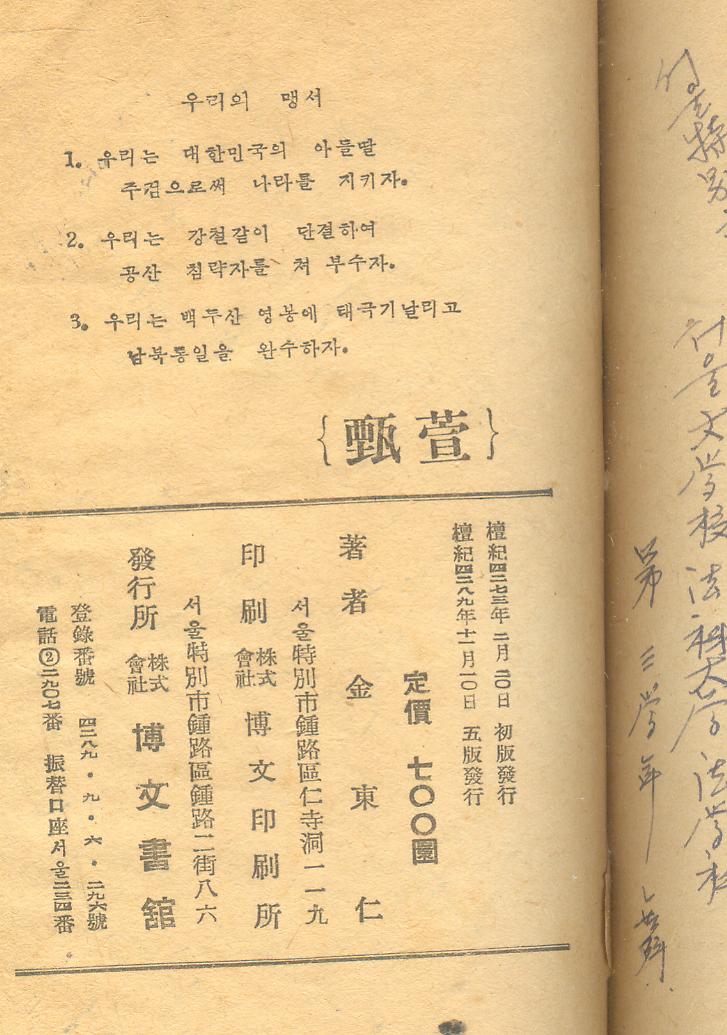 우리의 맹서
1. 우리는 대한민국의 아들딸
주검으로써 나라를 지키자.
2. 우리는 강철같이 단결하여
공산 침략자를 쳐 부수자.
3. 우리는 백두산 영봉에 태극기날리고
남북통일을 완수하자.
{甄萱}
檀紀四二七三年 二月 二〇日 初版發行
檀紀四二八九年十一月一〇日 五版發行
定價 七〇〇圜
著者 金東仁
서울特別市鍾路區仁寺洞一一九
印刷 株式會社 博文印刷所
서울特別市鍾路區鍾路二街八六
發行所 株式會社 博文書舘
登錄番號 四二八九・九・六・二九六號
電話②二九〇七番 振替口座서울二三四番
서울特別
서울文學校 法科大学 法学科
第三学年